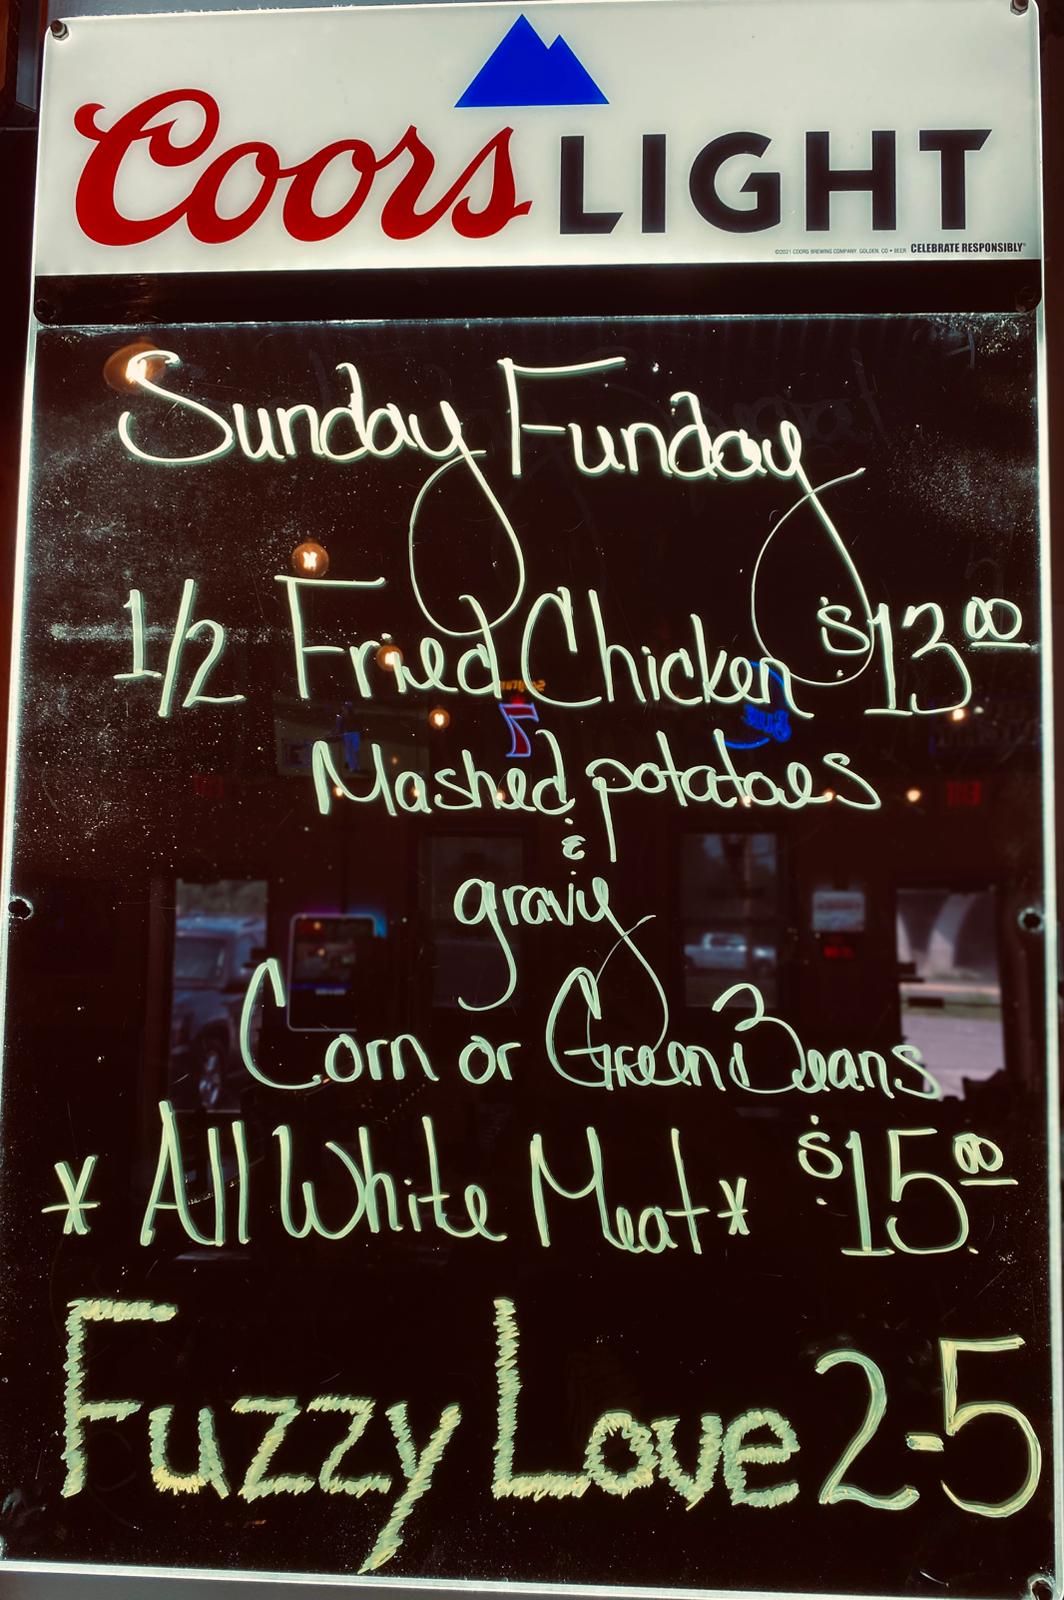 Coors LIGHT
©2021 COORS BREWING COMPANY, GOLDEN, CO • BEER CELEBRATE RESPONSIBLY®
Sunday Funday
1/2 Fried Chicken $13.00
Mashed potatoes
&
gravy
Corn or Green Beans
* All White Meat * $15.00
Fuzzy Love 2-5